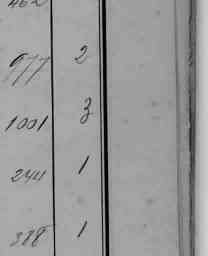 462
977 2
1001 3
244 1
388 1